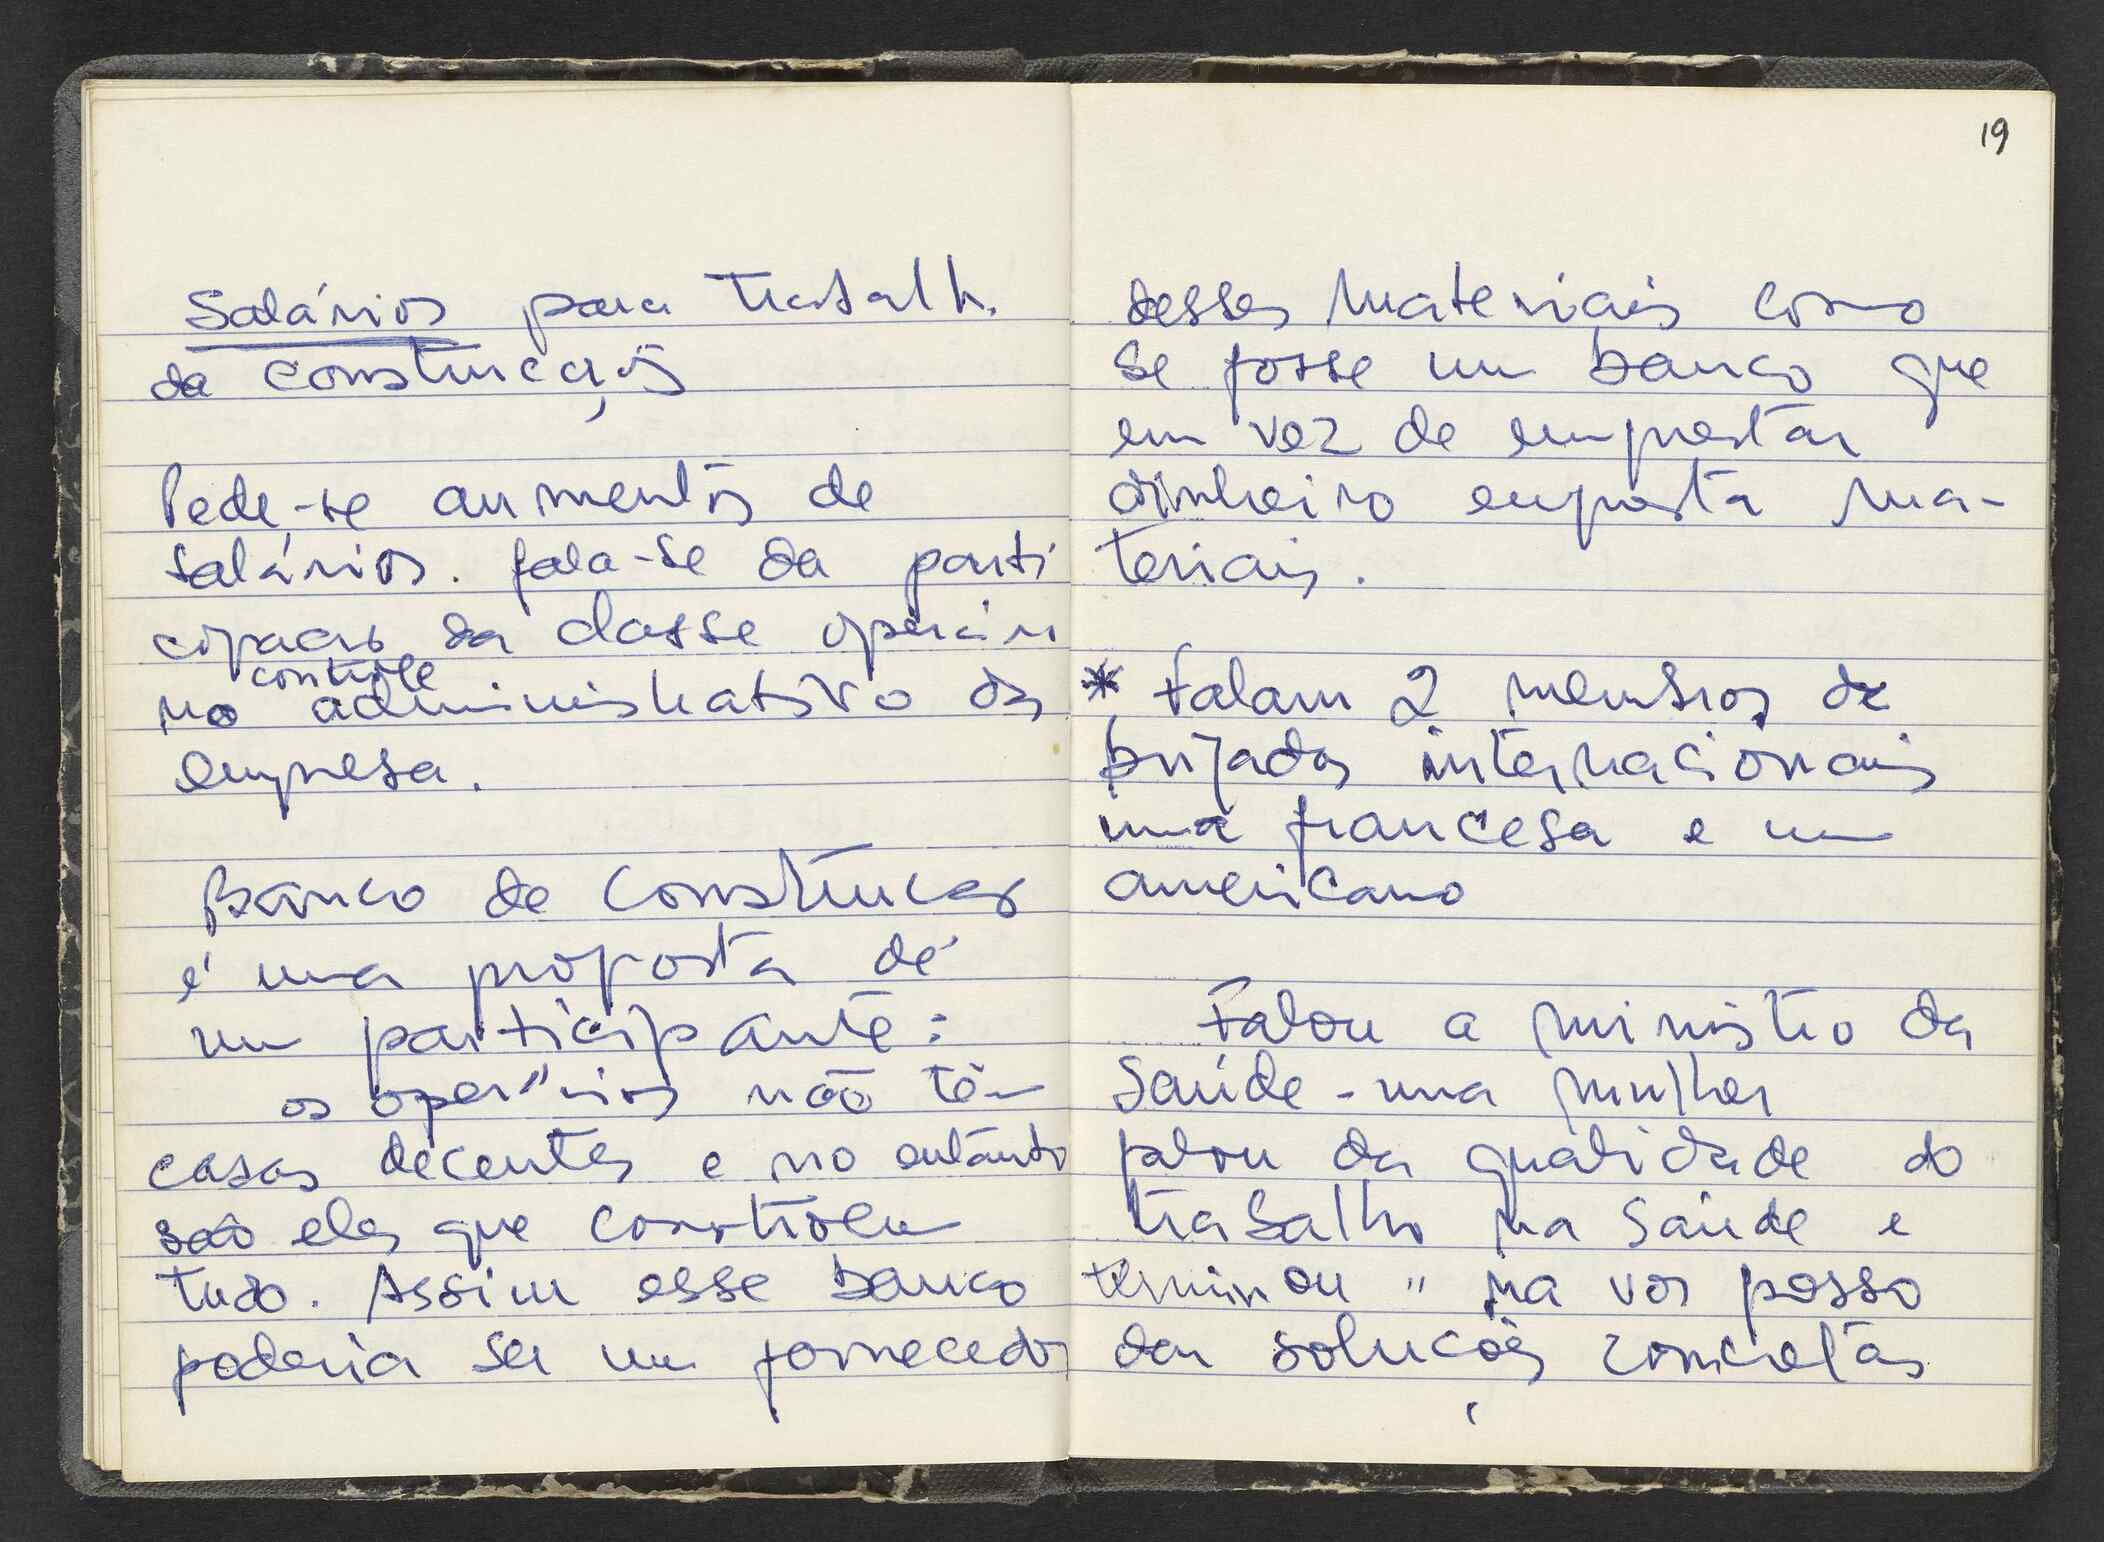 Salários para trabalh.
da construção
Pede-se aumentos de
salários. fala-se da parti
cipação da classe operári
controle
no administrativo da
empresa.
Banco de Construção
é uma proposta de
um participante:
os operários não têm
casas decentes e no entanto
são eles que constroem
tudo. Assim esse banco
poderia ser um fornecedor
19
desses materiais como
se fosse um banco que
em vez de emprestar
dinheiro empresta ma-
teriais.
* Falam 2 membros de
brigadas internacionais
uma francesa e um
americano
Falou a ministro da
Saúde - uma mulher
falou da qualidade do
trabalho na Saúde e
terminou " na vos posso
dar soluções concretas